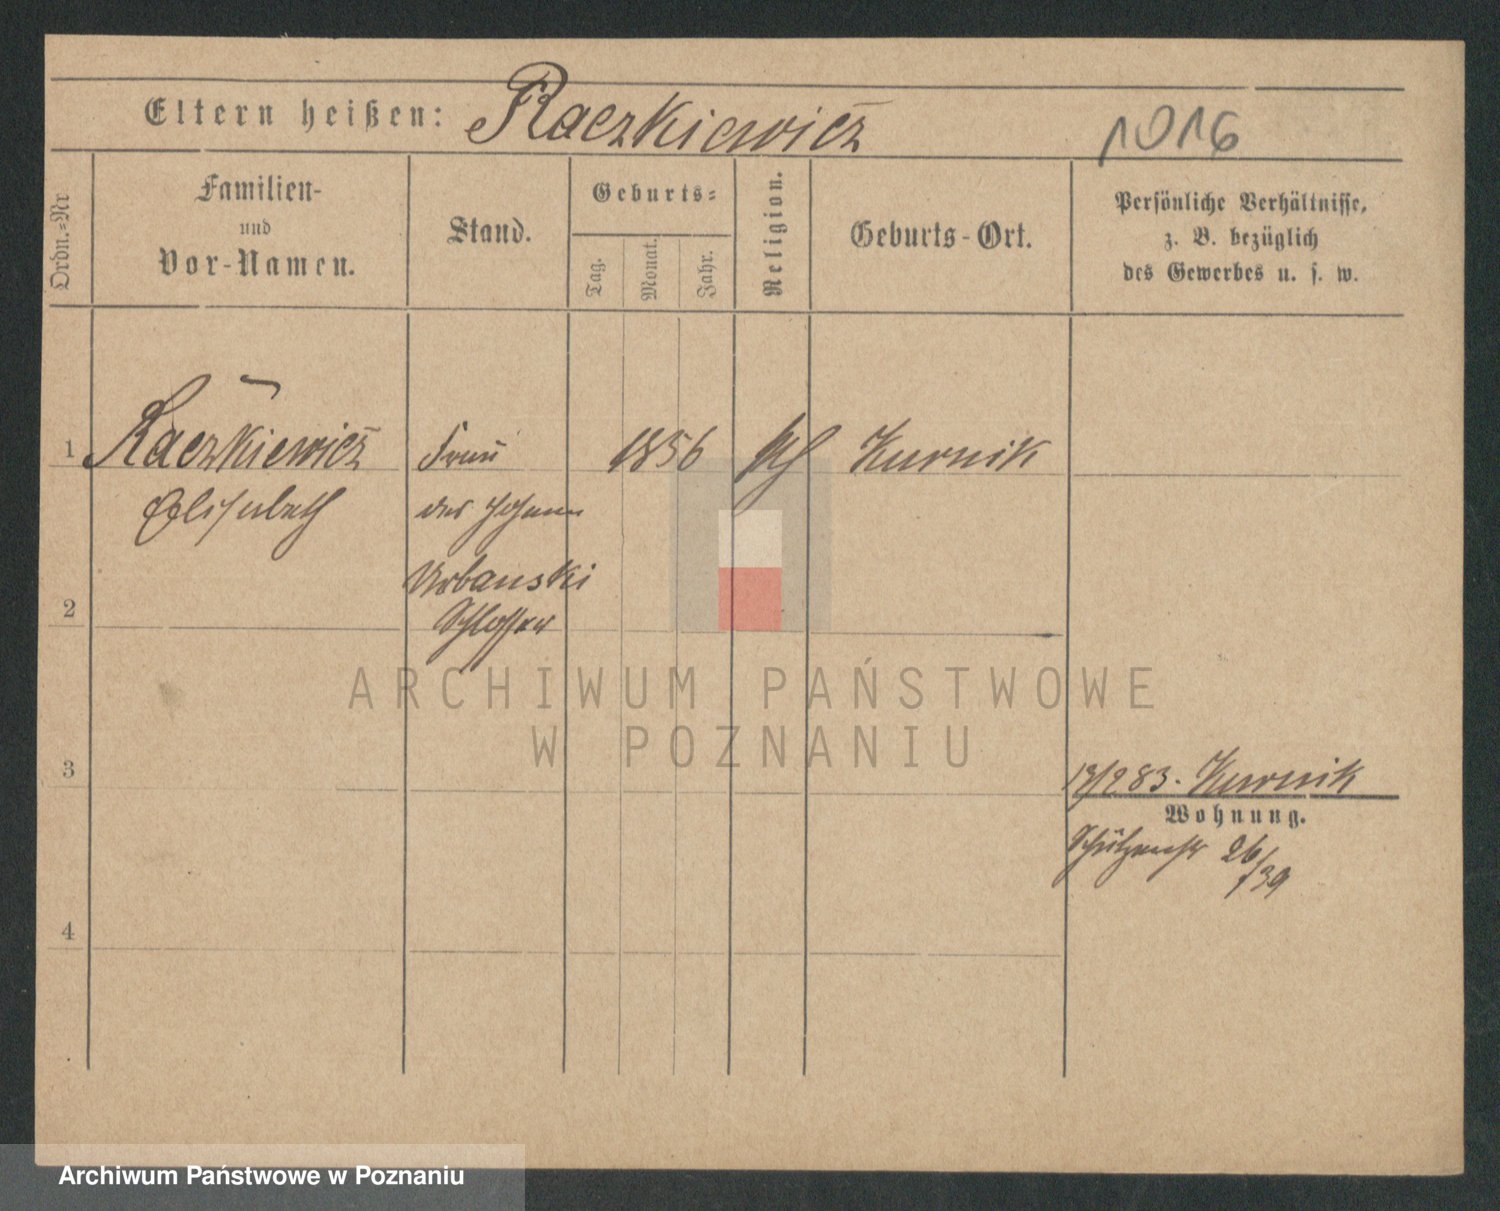 Eltern heißen: Raczkiewicz 1016
Ordn.=Nr
Familien-
und
Vor-Namen.
Stand.
Geburts=
Tag.
Monat.
Jahr.
Religion.
Geburts-Ort.
Persönliche Verhältnisse,
z. B. bezüglich
des Gewerbes u. s. w.
1 Raczkiewicz Frau 1856 Kurnik
Elisabeth des Johann
Urbanski
2 Schlosser
ARCHIWUM PAŃSTWOWE
W POZNANIU
3 83. Kurnik
Wohnung.
Schützenstr 26/39
4
Archiwum Państwowe w Poznaniu